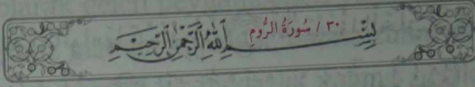 ٣٠ / سُورَةُ الرُّومِ
بِسْمِ اللَّهِ الرَّحْمَٰنِ الرَّحِيمِ